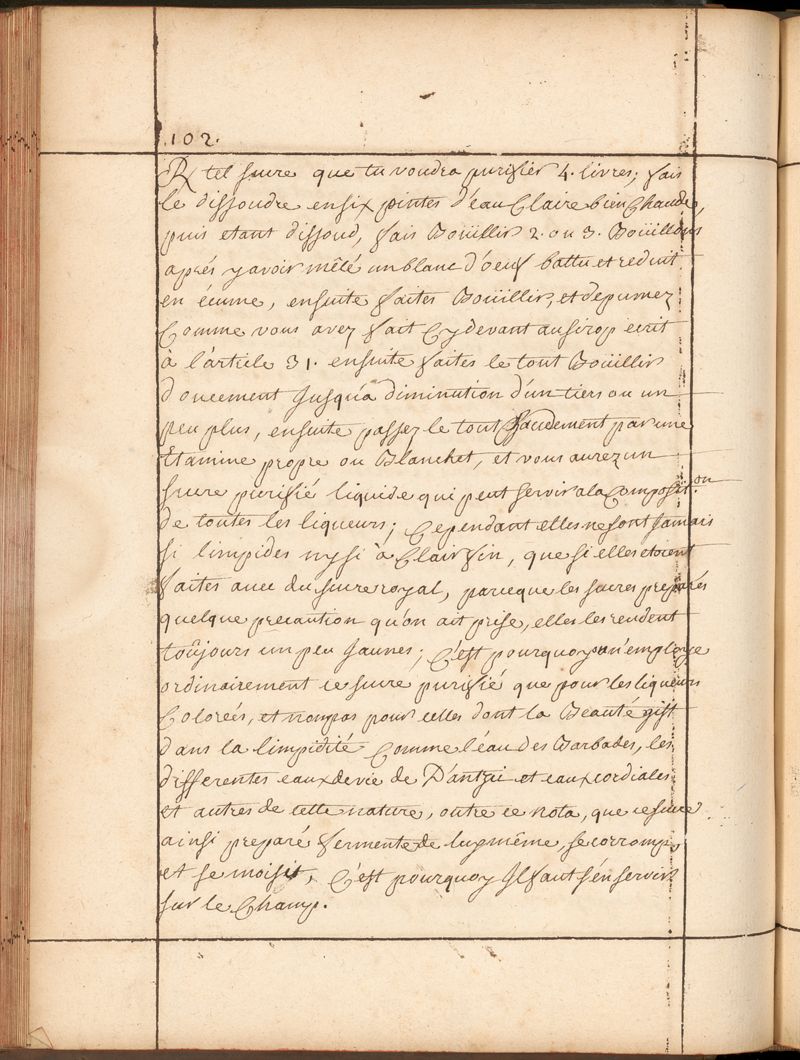 .102.
℞ tel sucre que tu voudra purifier 4. livres; fais
le dissoudre en six pintes d'eau Claire bien Chaude,
puis etant dissoud, fais Boüillir 2. ou 3. Boüillons
aprés y avoir mêlé un blanc d'oeuf battu et reduit
en écume, ensuite faites Boüillir, et depumez
Comme vous avez fait Cy devant au sirop ecrit
à l'article 31. ensuite faites le tout Boüillir
doucement Jusqu'a diminution d'un tiers ou un
peu plus, ensuite passez le tout Chaudement par une
Etamine propre ou Blanchet, et vous aurez un
sucre purifié liquide qui peut servir a la Composit.on
de toutes les liqueurs; Cependant elles ne sont Jamais
si limpides ny si à Clair fin, que si elles etoient
faites avec du sucre royal, parceque les sucres preparés
quelque precaution qu'on ait prise, elles les rendent
toûjours un peu Jaunes; C'est pourquoy on n'employe
ordinairement ce sucre purifié que pour les liqueurs
Colorées, et non pas pour celles dont la Beauté gist
dans la limpidité Comme l'eau des Barbades, les
differentes eaux de vie de D'antzic et eaux cordiales
et autres de cette nature, outre ce nota, que ce sucre
ainsi preparé fermente de luy même, se corromps
et se moisit, C'est pourquoy Il faut s'en servir
sur le Champ.